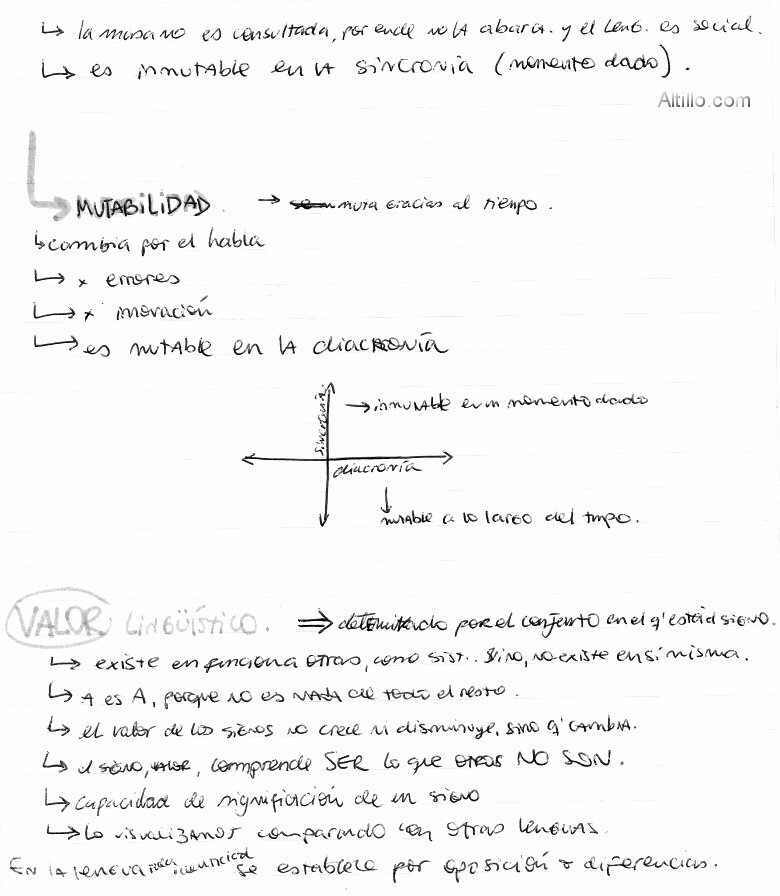 ↳ la masa no es consultada, por ende no LA abarca. y el Leng. es social.
↳ es inmutable en LA sincronía (momento dado).
Altillo.com
↳ MUTABILIDAD. → muta gracias al tiempo.
↳ cambia por el habla
↳ x errores
↳ x inovación
↳ es mutable en LA diacronía
sincronía
→ inmutable en un momento dado
diacronía
↓
mutable a lo largo del tmpo.
VALOR LINGÜÍSTICO. ⇒ determinado por el conjunto en el q' está el signo.
↳ existe en función a otras, como sist.. Sino, no existe en sí misma.
↳ A es A, porque no es NADA de todo el resto.
↳ el valor de los signos no crece ni disminuye, sino q' cambia.
↳ el signo, valor, comprende SER lo que otros NO SON.
↳ capacidad de signifiación de un signo
↳ lo visualizamos comparando con otras lenguas.
En la lengua se establece por oposición o diferencias.